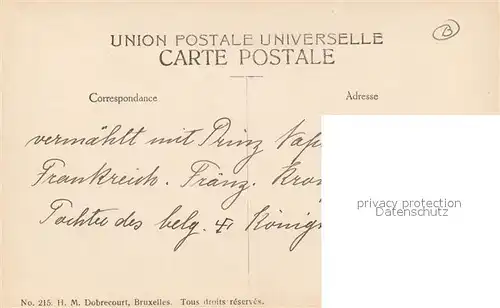 B
UNION POSTALE UNIVERSELLE
CARTE POSTALE
Correspondance
Adresse
vermählt mit Prinz Nap
Frankreich. Franz. Kro
Tochter des belg. Königs
privacy protection
Datenschutz
No. 215. H. M. Dobrecourt, Bruxelles. Tous droits réservés.